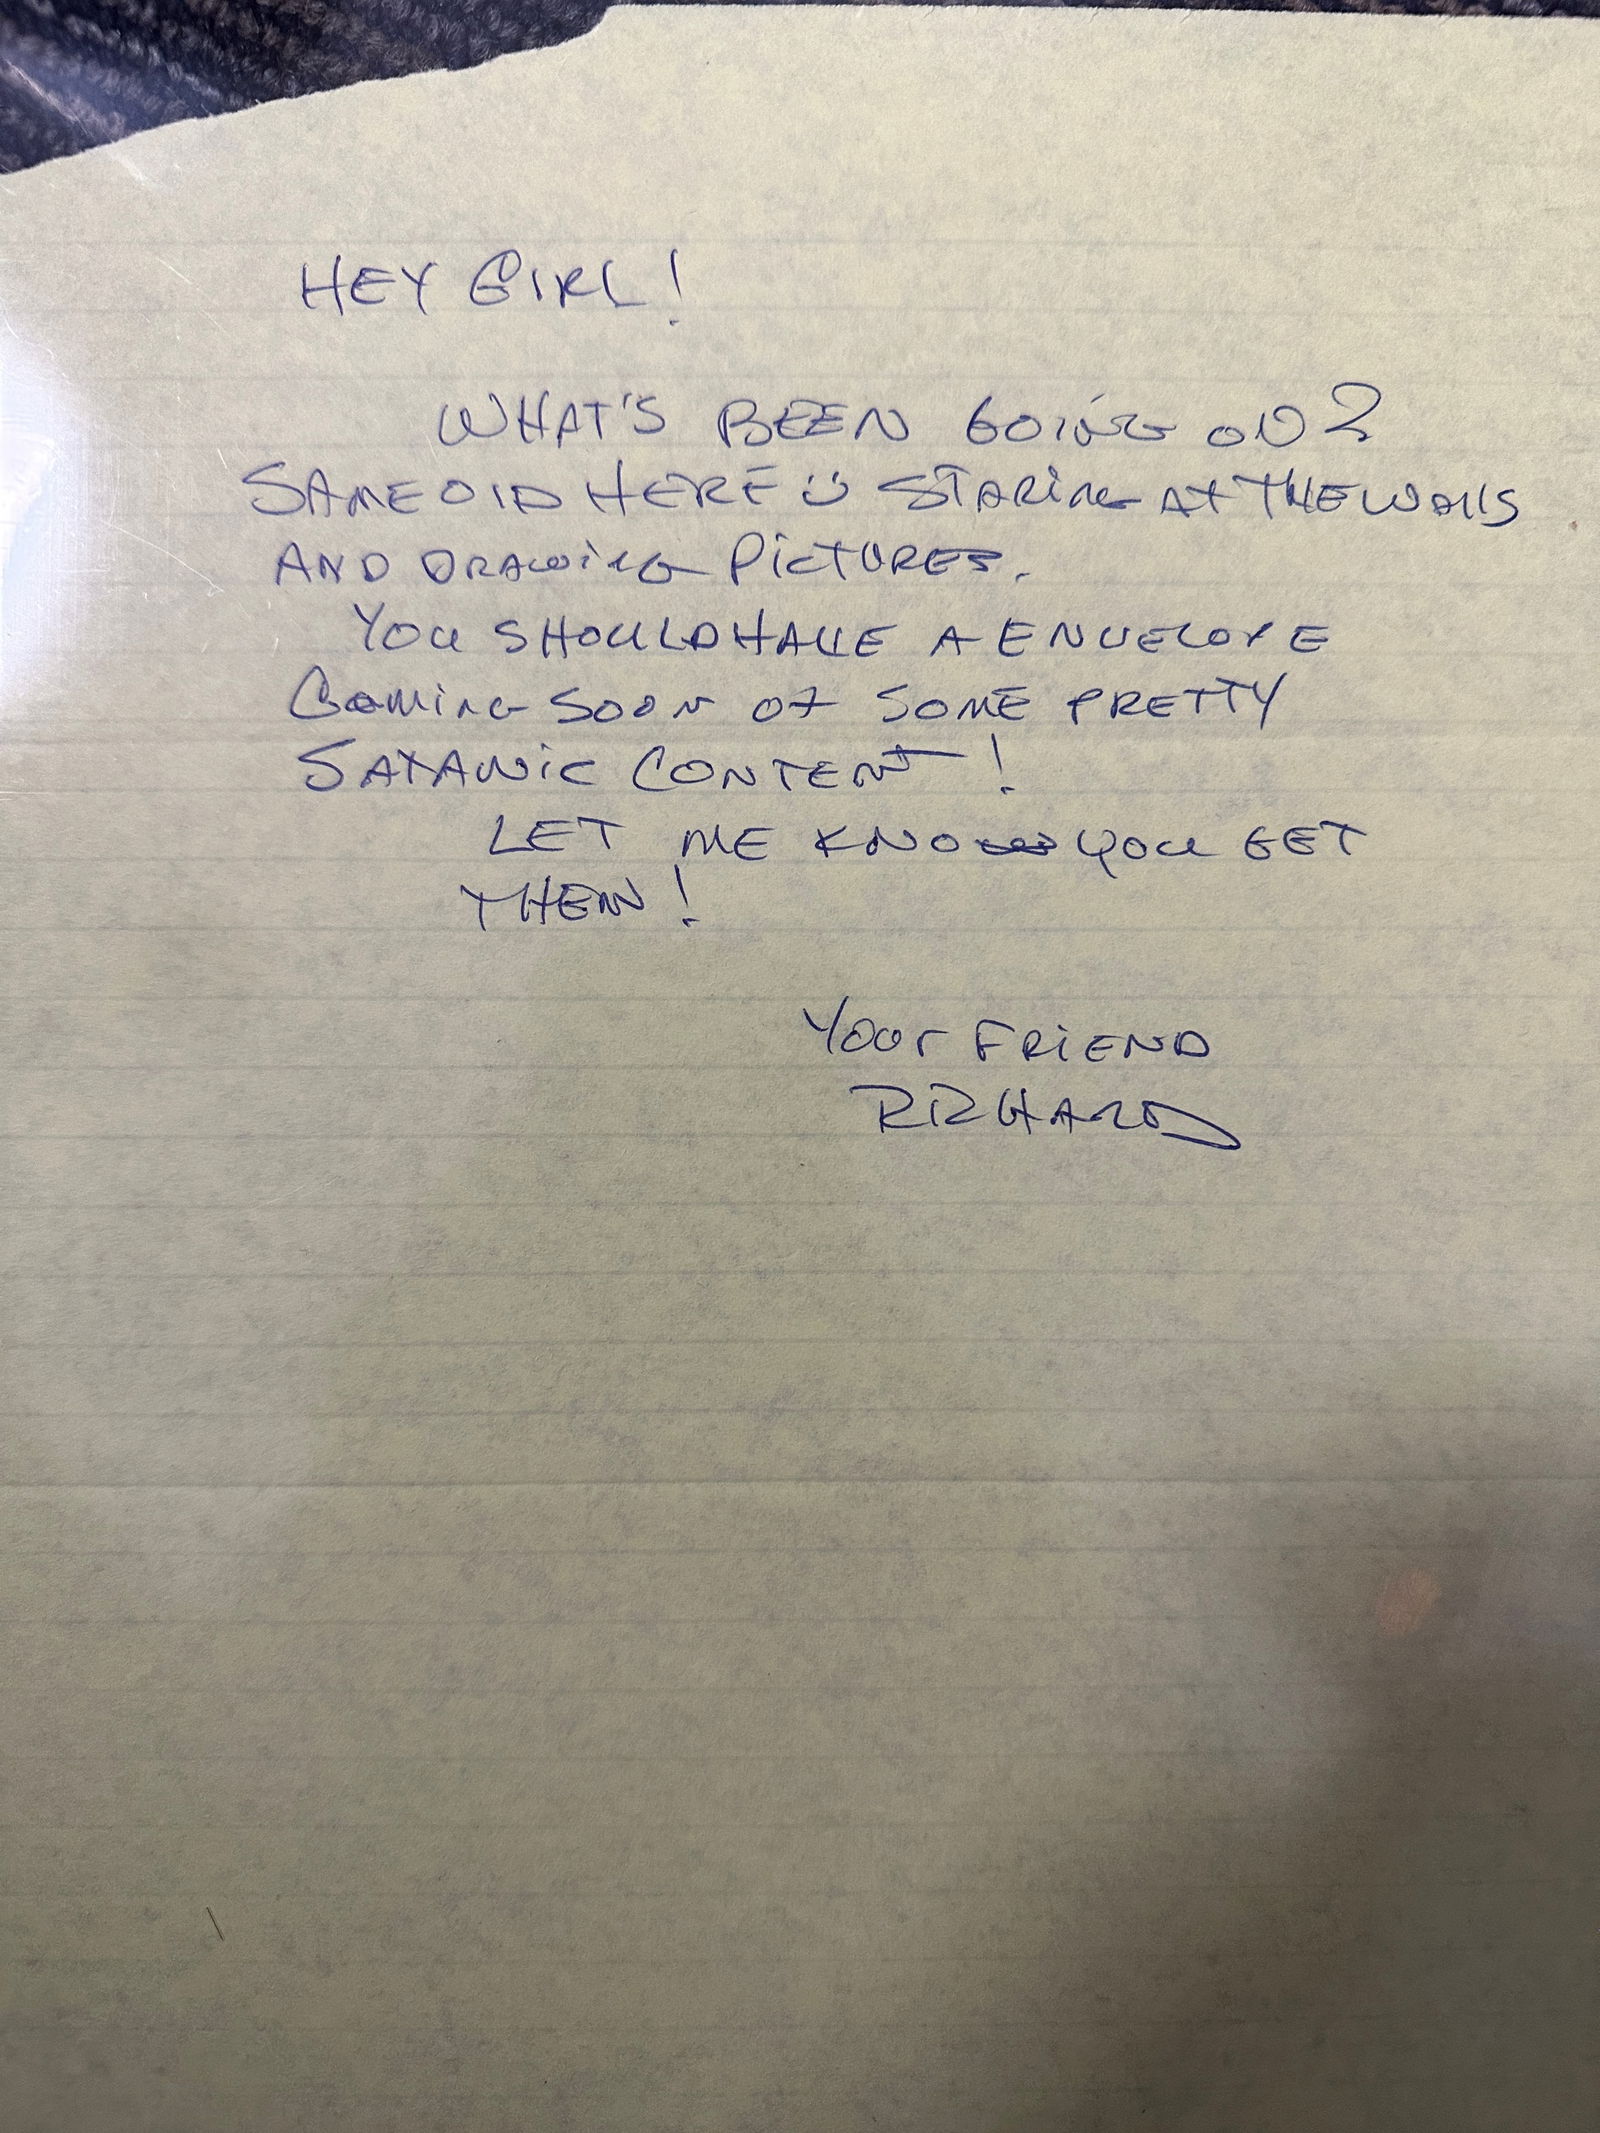 HEY GIRL!
WHAT'S BEEN GOiNG ON?
SAME OlD HERE ü STARiNG AT THE WAllS
AND DRAWiNG PiCTURES.
YOU SHOULD HAVE A ENVELOPE
COMiNG SOON OF SOME PRETTY
SATANiC CONTENT!
LET ME KNOW YOU GET
THEM!
YOUr FRiEND
RICHARD